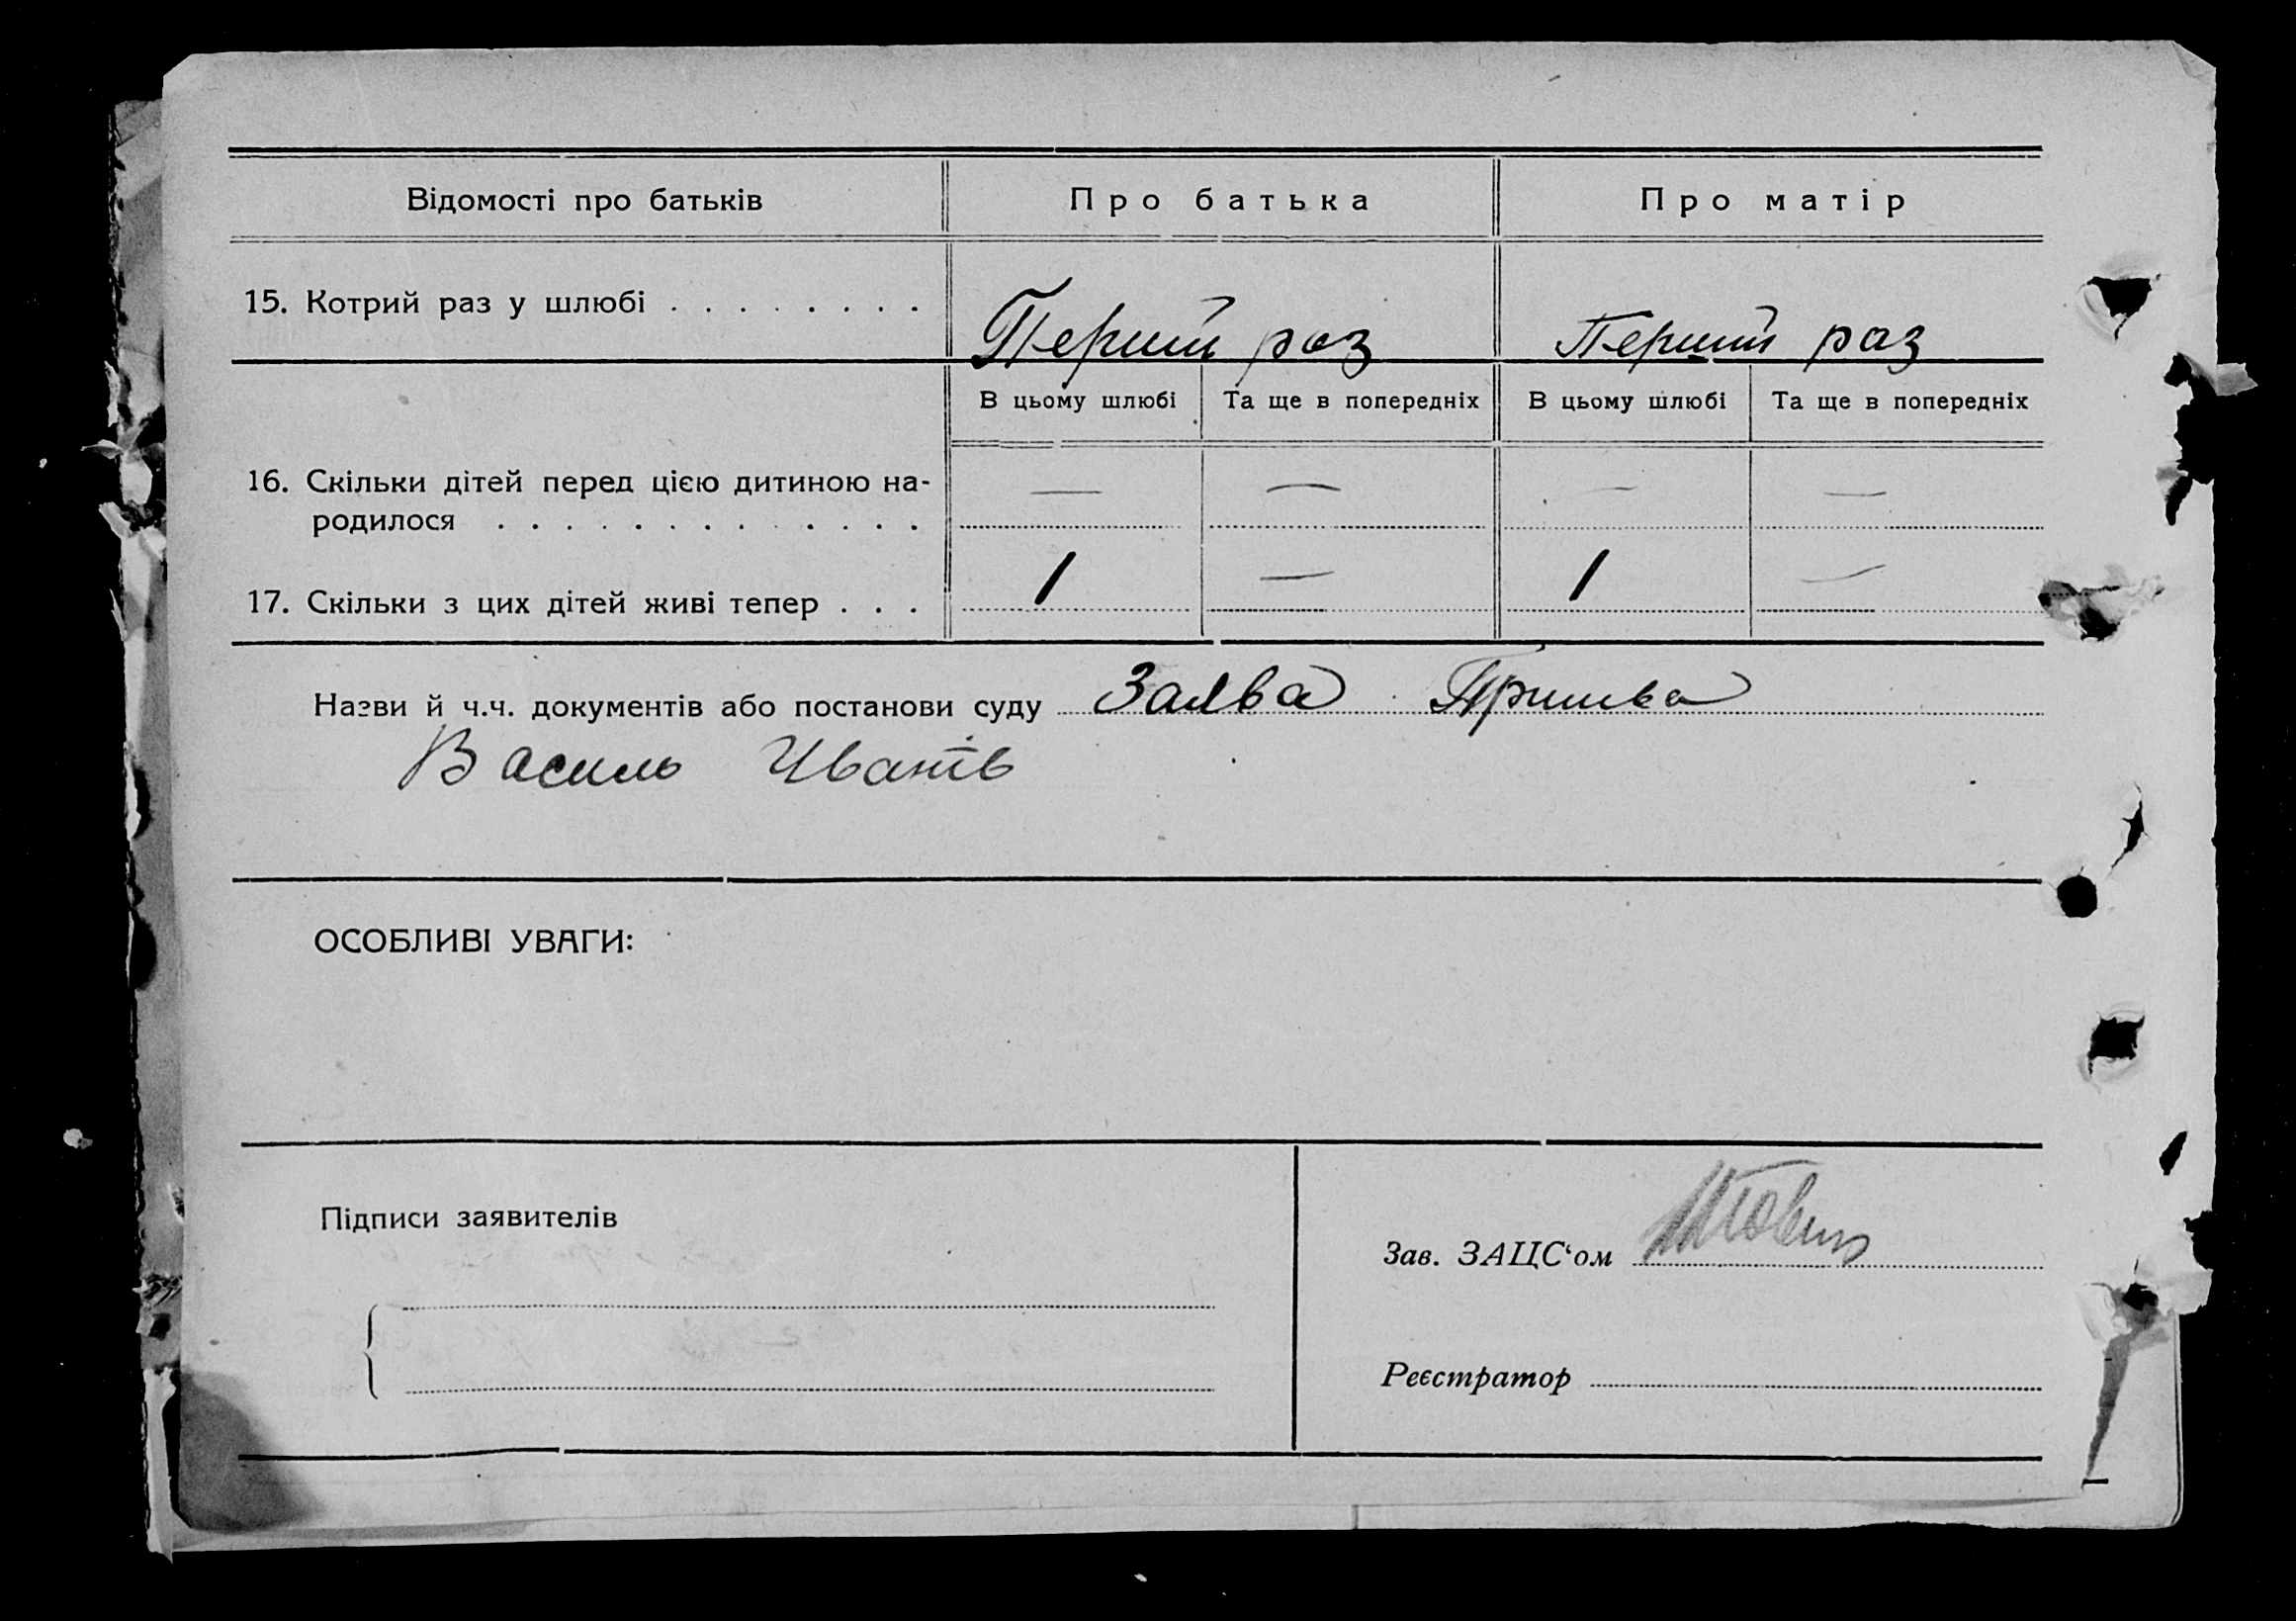 Відомості про батьків Про батька Про матір
15. Котрий раз у шлюбі . . . . . . . . Перший раз Перший раз
В цьому шлюбі Та ще в попередніх В цьому шлюбі Та ще в попередніх
16. Скільки дітей перед цією дитиною на- — — — —
родилося . . . . . . . . . . . . .
17. Скільки з цих дітей живі тепер . . . 1 — 1 —
Назви й ч.ч. документів або постанови суду Заява
Василь
ОСОБЛИВІ УВАГИ:
Підписи заявителів
Зав. ЗАЦС‘ом
Реєстратор